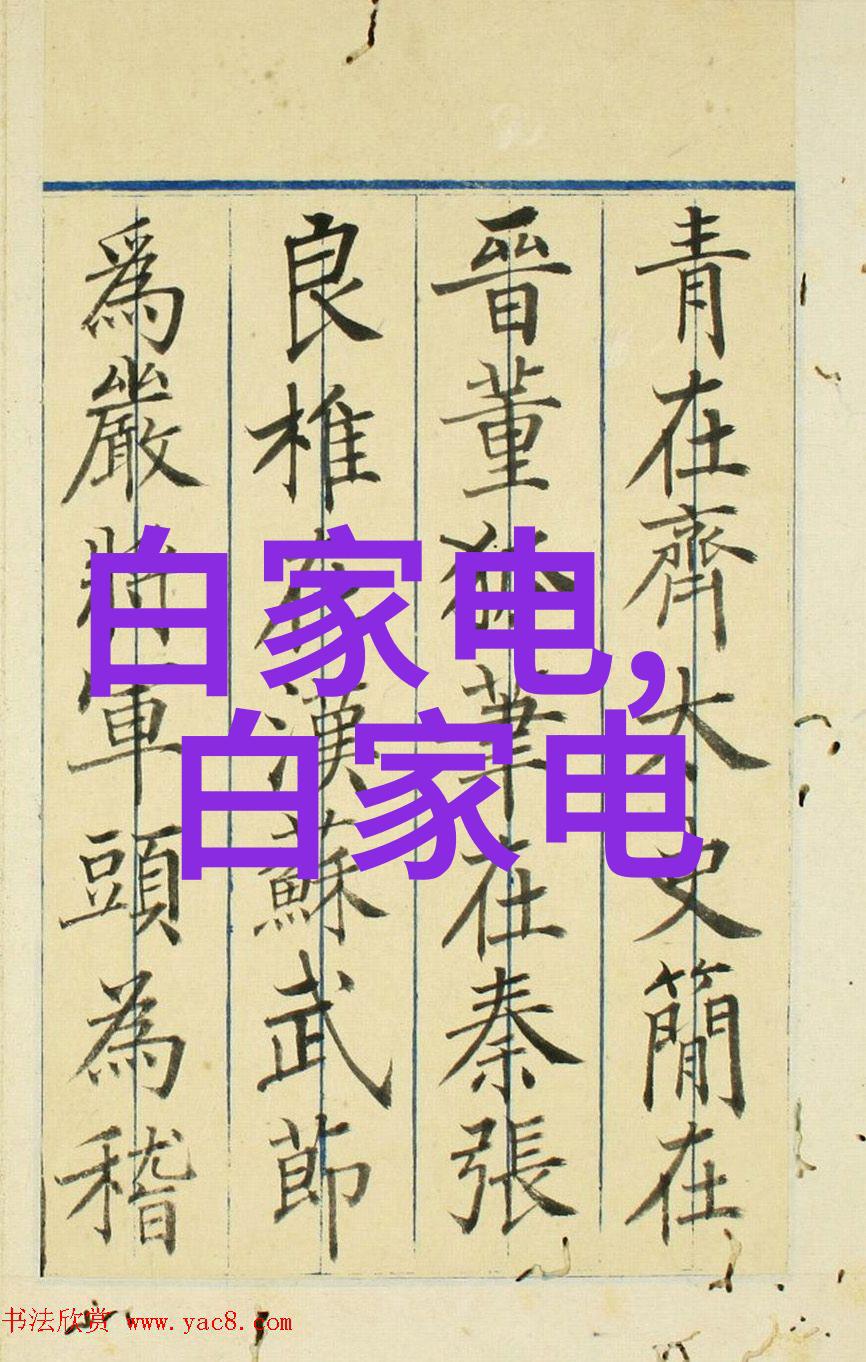 青在齊太史簡在
晉董狐筆在秦張
良椎在漢蘇武節
爲嚴將軍頭為稽
白家电,
白家电
书法欣赏 www.yac8.com